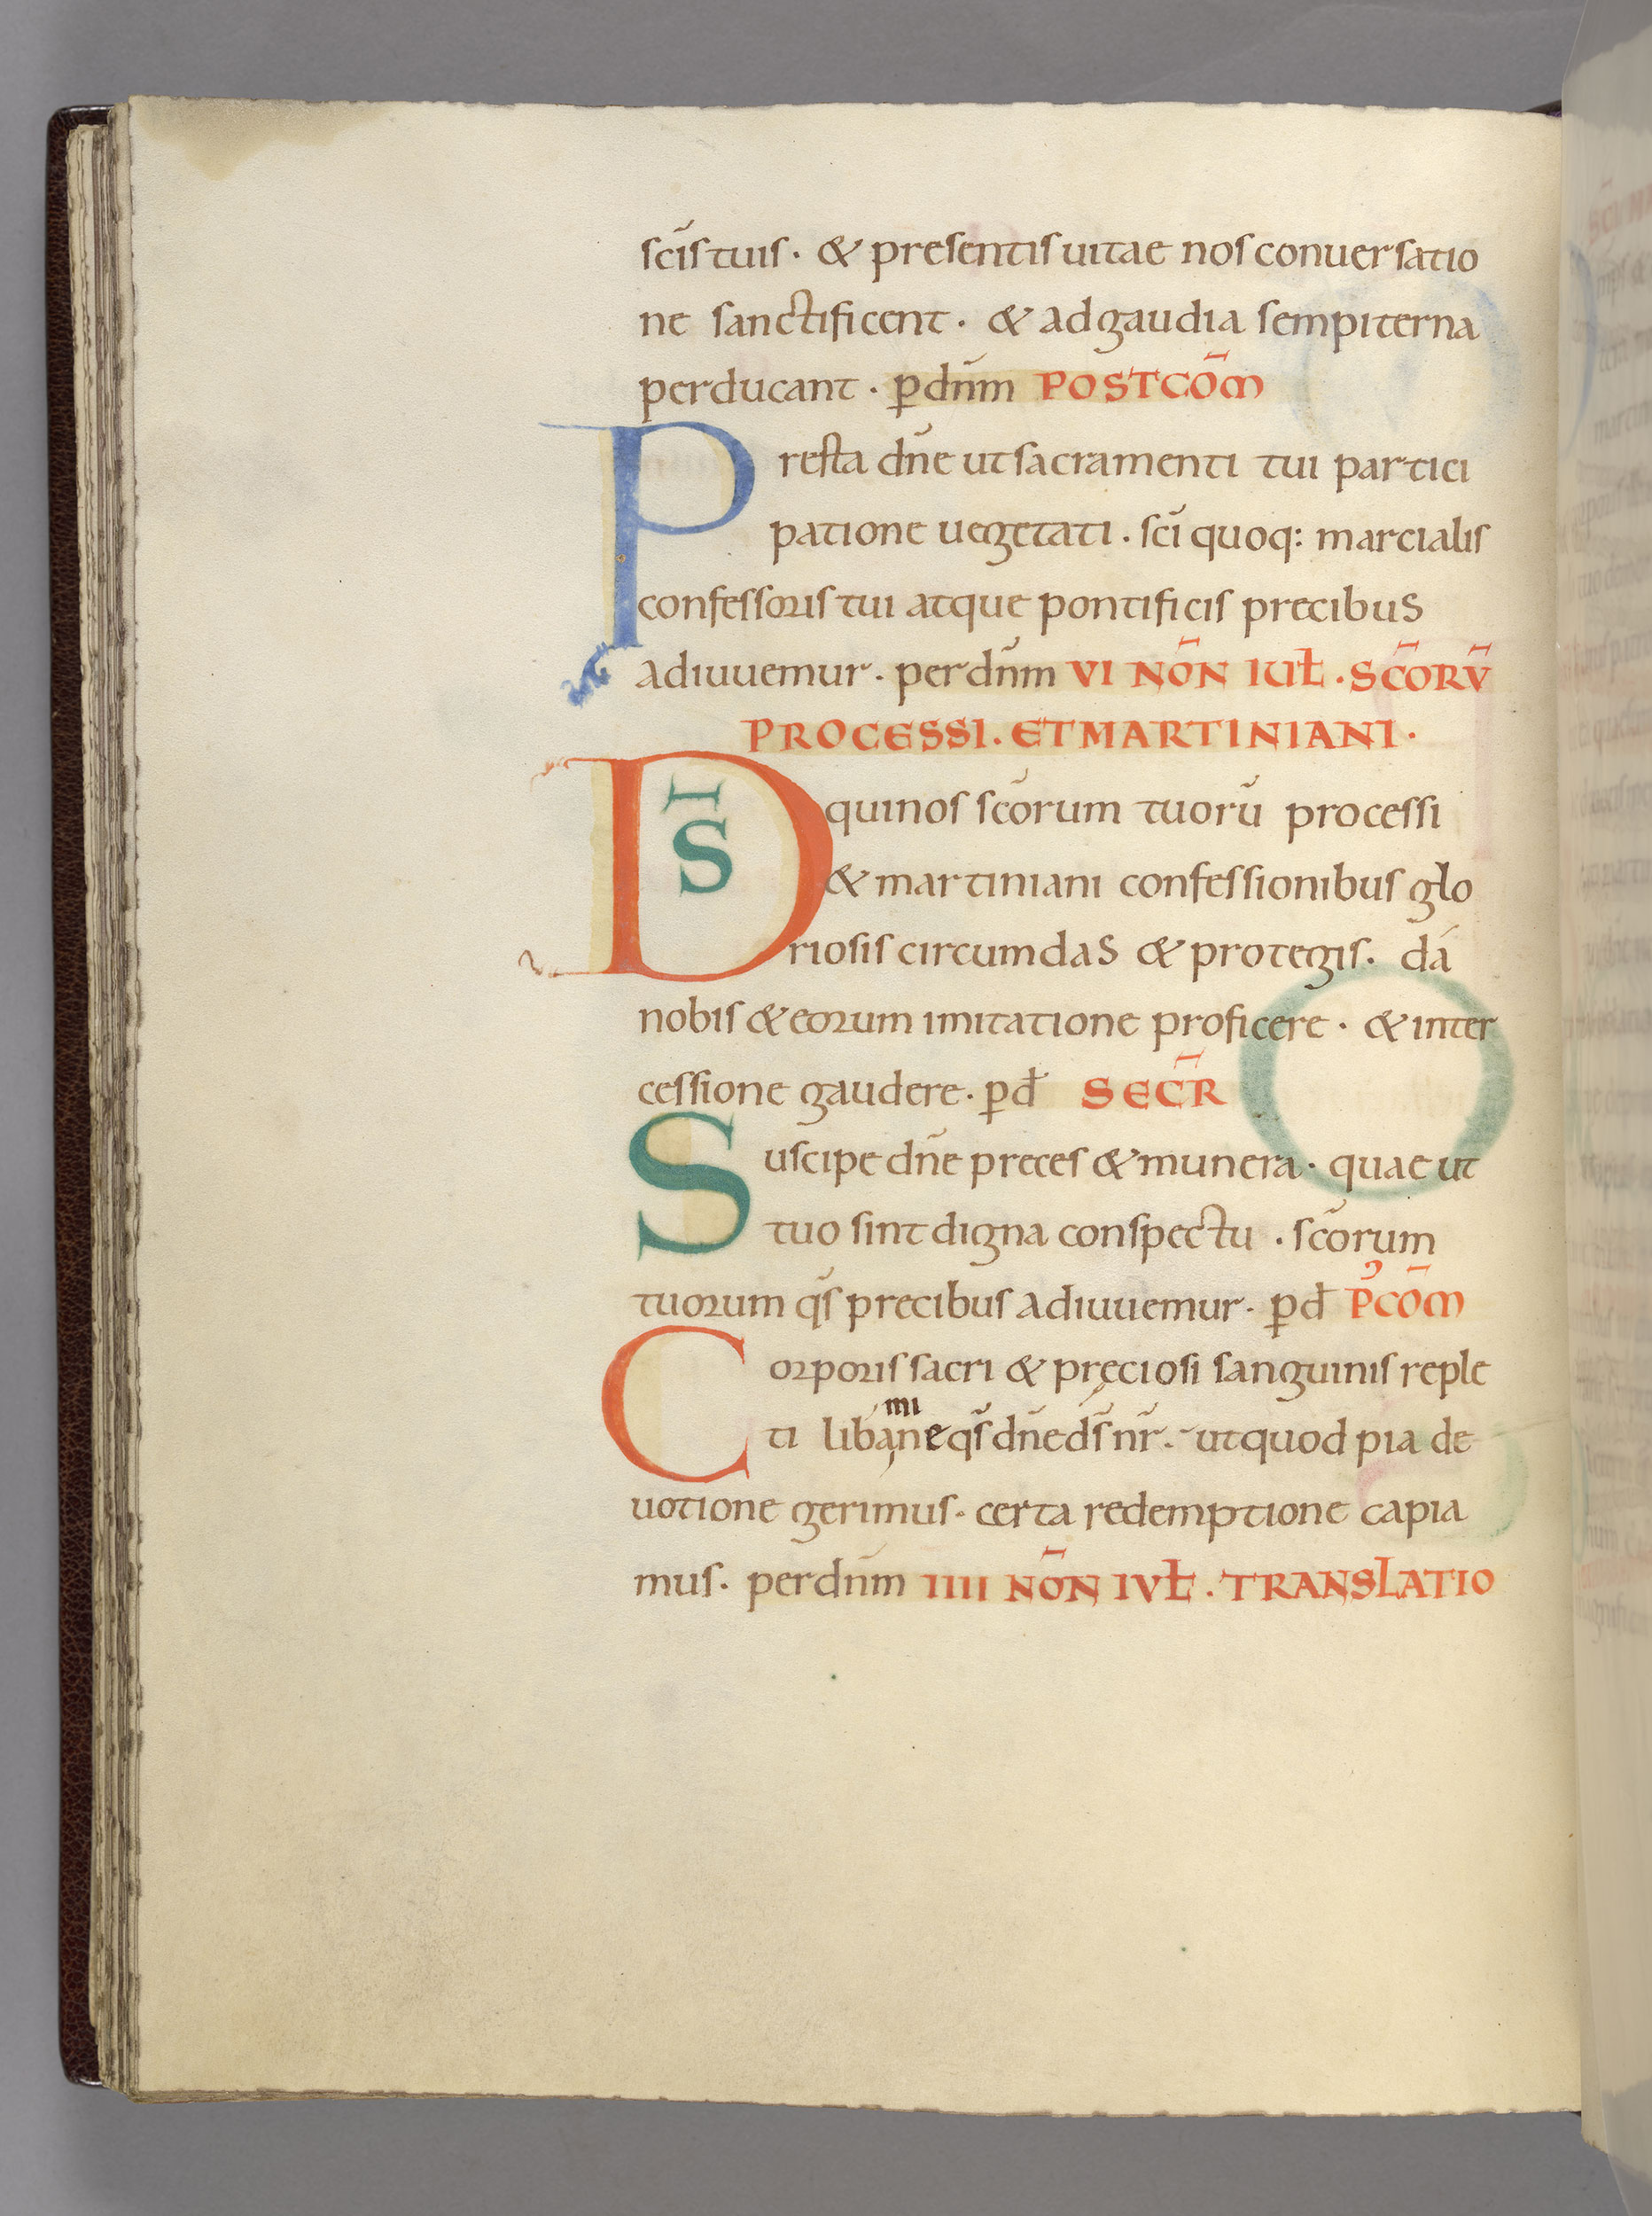 sc̄is tuis · & presentis uitae nos conuersatio
ne sanctificent · & ad gaudia sempiterna
perducant · ꝑ dn̄m POSTCOM̄
Presta dn̄e ut sacramenti tui partici
patione uegetati · sc̄i quoq: marcialis
confessoris tui atque pontificis precibus
adiuuemur · per dn̄m VI NON̄ IUL̄ · SC̄ORV̄
PROCESSI · ET MARTINIANI ·
DS̄ qui nos sc̄orum tuorū processi
& martiniani confessionibus glo
riosis circumdas & protegis · dá
nobis & eorum imitatione proficere · & inter
cessione gaudere · ꝑ d̄ SECR̄
Suscipe dn̄e preces & munera · quae ut
tuo sint digna conspectu · sc̄orum
tuorum qs̄ precibus adiuuemur · ꝑ d̄ P̄COM̄
Corporis sacri & pręciosi sanguinis reple
mi
ti libane qs̄ dn̄e ds̄ nr̄ · ut quod pia de
uotione gerimus · certa redemptione capia
mus · per dn̄m IIII NON̄ IVL̄ · TRANSLATIO